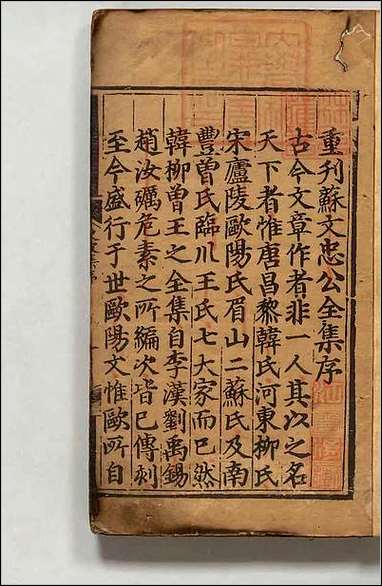 重刊蘇文忠公全集序
古今文章作者非一人其以之名
天下者惟唐昌黎韓氏河東柳氏
宋廬陵歐陽氏眉山二蘇氏及南
豐曾氏臨川王氏七大家而已然
韓柳曾王之全集自李漢劉禹錫
趙汝礪危素之所編次皆已傳刻
至今盛行于世歐陽文惟歐所自